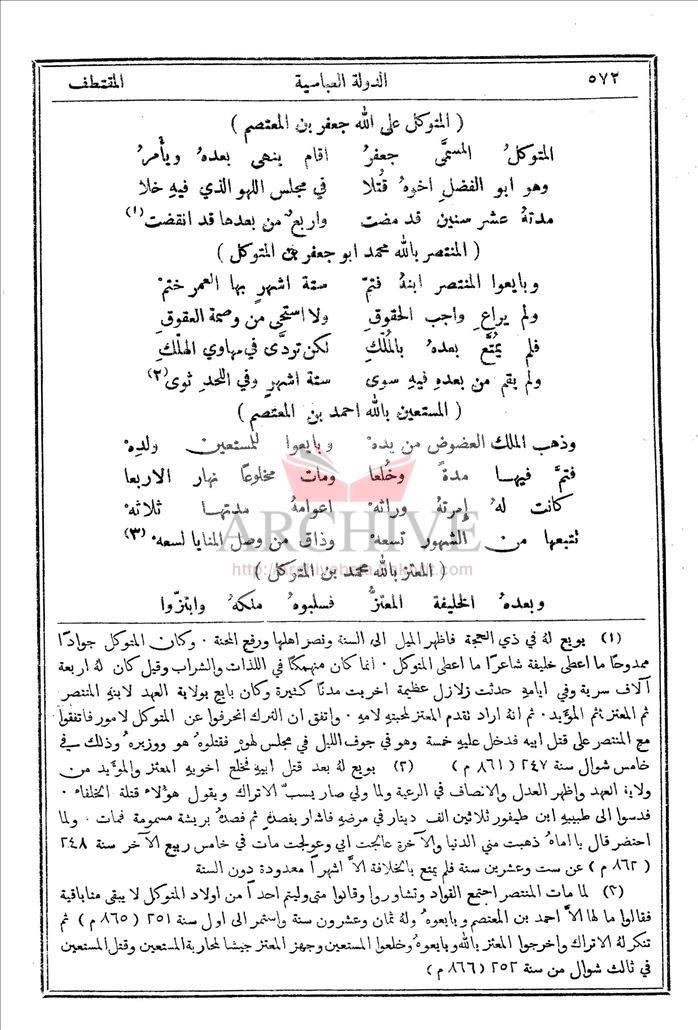 ٥٧٢ الدولة العباسية المقتطف
( المتوكل على الله جعفر بن المعتصم )
المتوكلُ المسمَّى جعفرُ اقام ينهى بعدهُ ويأْمرُ
وهو ابو الفضلِ اخوهُ قُتلا في مجلس اللهو الذي فيهِ خلا
مدتهُ عشر سنين قد مضت واربعٌ من بعدها قد انقضت (١)
( المنتصر بالله محمد ابو جعفر بن المتوكل )
وبايعوا المنتصر ابنهُ فتمّ ستة اشهرٍ بها العمر ختمْ
ولم يراعِ واجب الحقوقِ ولا استحى من وصمة العقوقِ
فلم يُمتَّع بعدهُ بالمُلْكِ لكن تردَّى في مهاوي الهلْكِ
ولم يقم من بعدهِ فيهِ سوى ستة اشهرٍ وفي اللحد ثوى (٢)
( المستعين بالله احمد بن المعتصم )
وذهب الملك العضوض من يدهْ وبايعوا للمستعين ولدِهْ
فتمَّ فيها مدةً وخُلعا ومات مخلوعًا نهار الاربعا
كانت لهُ إمرتهُ وراثهْ اعوامهُ مدتها ثلاثهْ
تتبعها من الشهور تسعهْ وذاق من وصل المنايا لسعهْ (٣)
ARCHIVE
( المعتز بالله محمد بن المتوكل )
وبعدهُ الخليفة المعتزُّ فسلبوهُ ملكهُ وابتزّوا
(١) بويع لهُ في ذي الحجة فاظهر الميل الى السنة ونصر اهلها ورفع المحنة . وكان المتوكل جوادًا
ممدوحًا ما اعطى خليفة شاعرًا ما اعطى المتوكل . انما كان منهمكًا في اللذات والشراب وقيل كان لهُ اربعة
آلاف سرية وفي ايامهِ حدثت زلازل عظيمة اخربت مدنًا كثيرة وكان بايع بولاية العهد لابنهِ المنتصر
ثم المعتز ثم المؤيد . ثم انهُ اراد تقدم المعتز لمحبتهِ لامهِ . واتفق ان الترك انحرفوا عن المتوكل لامور فاتفقوا
مع المنتصر على قتل ابيه فدخل عليهِ خمسة وهو في جوف الليل في مجلس لهوهِ فقتلوهُ هو ووزيرهُ وذلك في
خامس شوال سنة ٢٤٧ (٨٦١ م) (٢) بويع لهُ بعد قتل ابيهِ فخلع اخويهِ المعتز والمؤيد من
ولاية العهد واظهر العدل والانصاف في الرعية ولما ولي صار يسبُّ الاتراك ويقول هؤلاء قتلة الخلفاء .
فدسوا الى طبيبهِ ابن طيفور ثلاثين الف دينار في مرضهِ فاشار بفصدهِ ثم فصدهُ بريشة مسمومة فمات . ولما
احتضر قال يا اماهُ ذهبت مني الدنيا والآخرة عاجلت ابي وعوجلت مات في خامس ربيع الآخر سنة ٢٤٨
(٨٦٢ م) عن ست وعشرين سنة فلم يمتع بالخلافة الاَّ اشهرًا معدودة دون السنة
(٣) لما مات المنتصر اجتمع القواد وتشاوروا وقالوا متى وليتم احدًا من اولاد المتوكل لا يبقى منا باقية
فقالوا ما لها الاَّ احمد بن المعتصم وبايعوهُ ولهُ ثمان وعشرون سنة واستمر الى اول سنة ٢٥١ (٨٦٥ م) ثم
تنكر لهُ الاتراك واخرجوا المعتز بالله وبايعوهُ وخلعوا المستعين وجهز المعتز جيشًا لمحاربة المستعين وقتل المستعين
في ثالث شوال من سنة ٢٥٢ (٨٦٦ م)